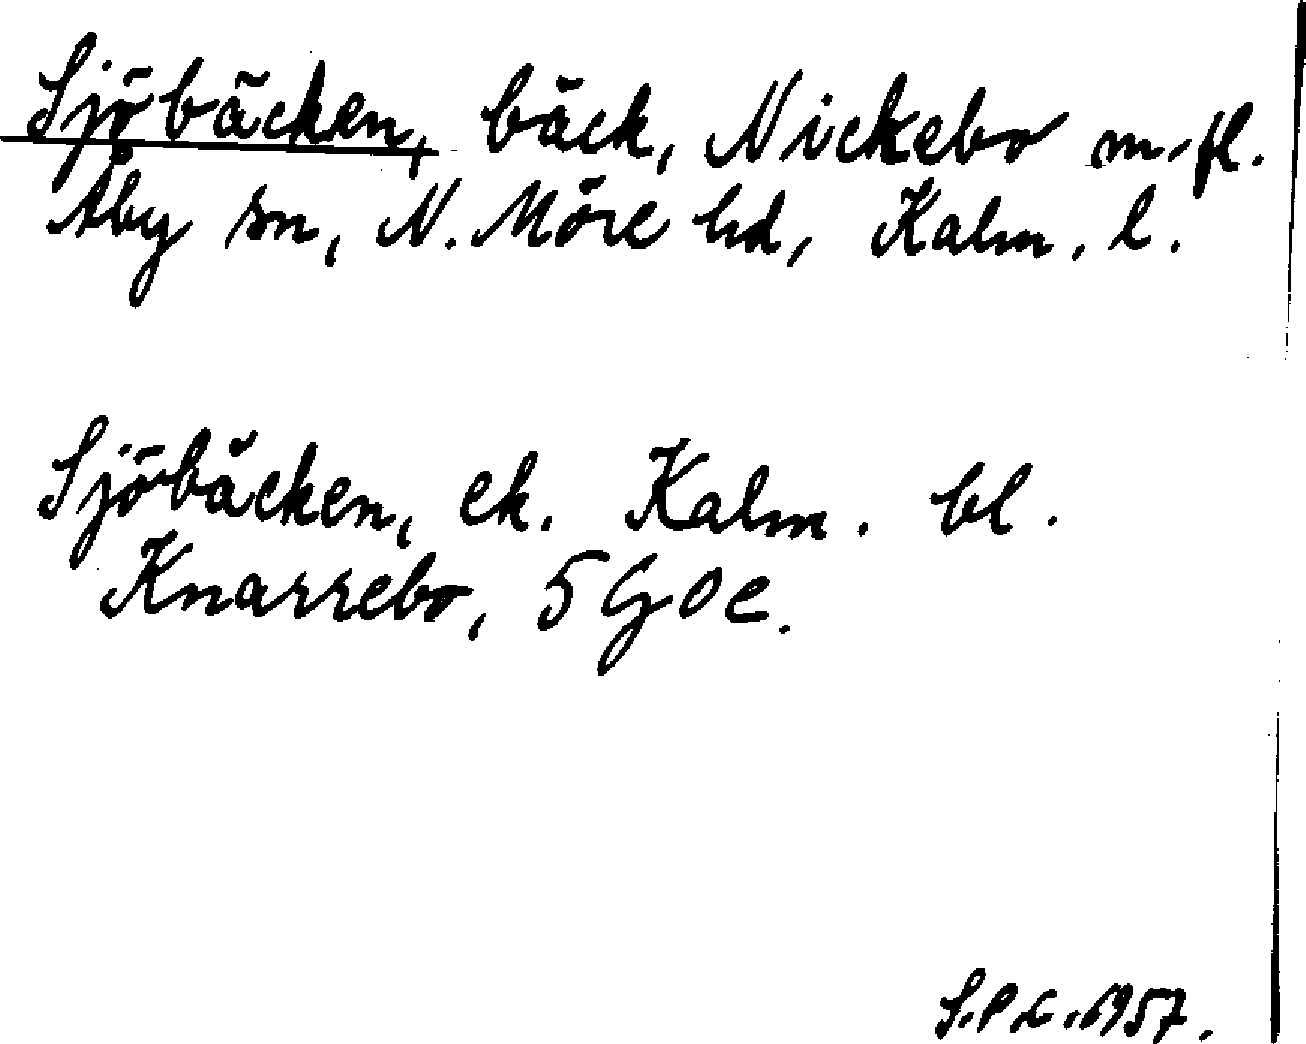 Sjöbäcken, bäck, Nickebo m.fl.
Åby sn, N. Möre hd, Kalm. l.
Sjöbäcken, ek. Kalm. bl.
Knarrebo, 5G0e.
S.P.G. 1957.